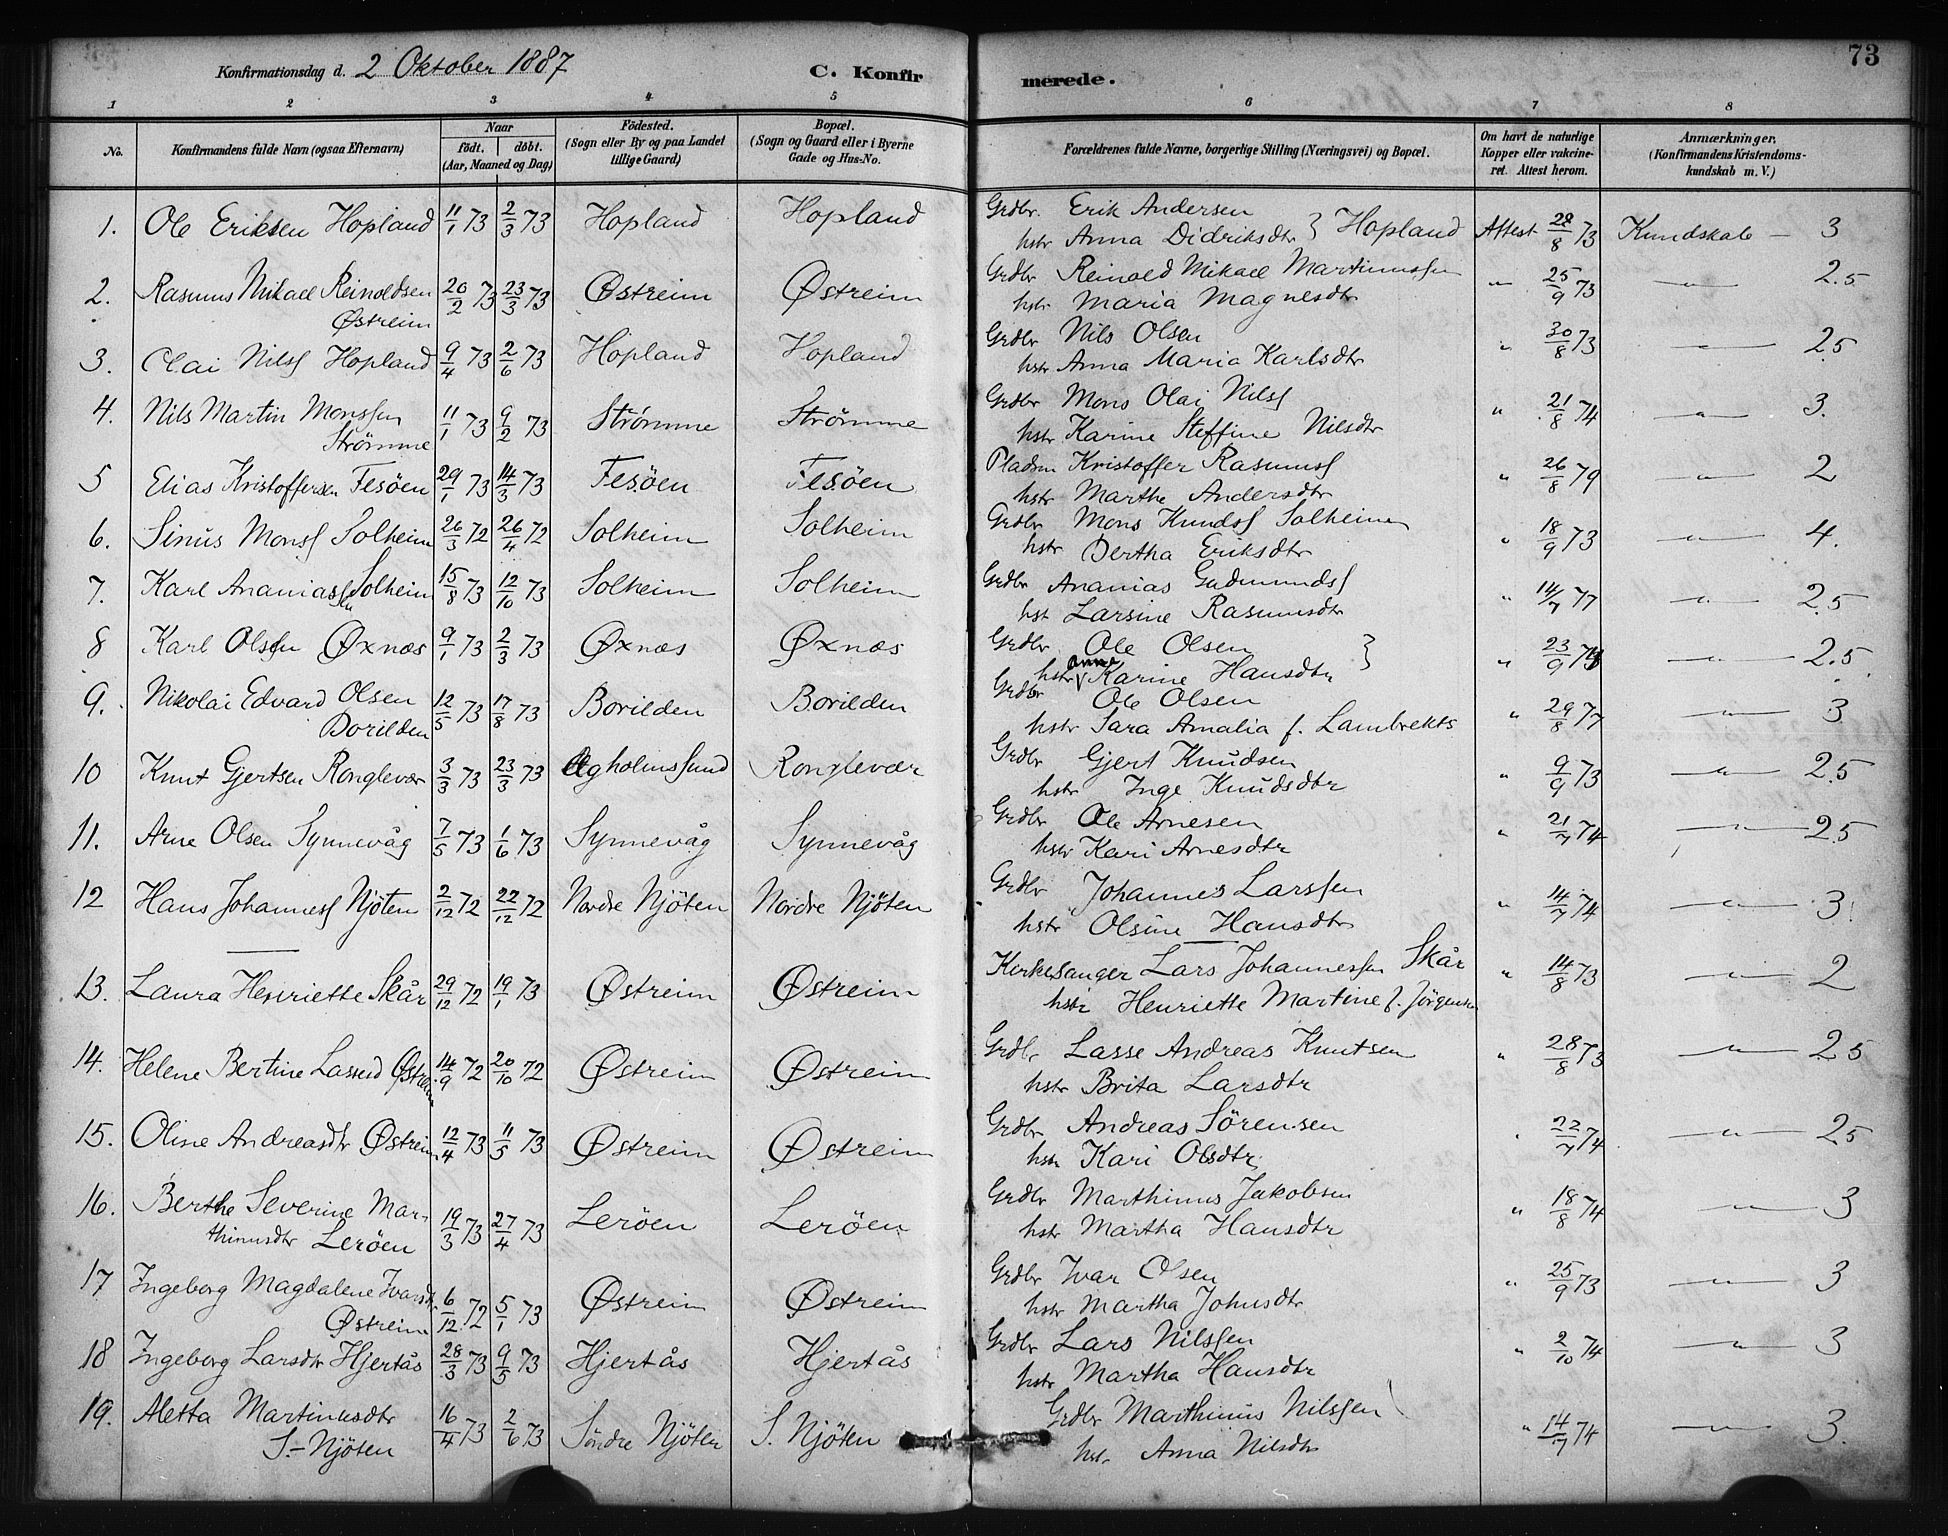 Konfirmationsdag d. 2 Oktober 1887 C. Konfirmerede. 73
1 2 3 4 5 6 7 8
No. Konfirmandens fulde Navn (ogsaa Efternavn) Naar født. døbt. (Aar, Maaned og Dag) Födested. (Sogn eller By og paa Landet tillige Gaard) Bopæl. (Sogn og Gaard eller i Byerne Gade og Hus-No. Forældrenes fulde Navne, borgerlige Stilling (Næringsvei) og Bopæl. Om havt de naturlige Kopper eller vakcineret. Attest herom. Anmærkninger, (Konfirmandens Kristendomskundskab m. V.)
1. Ole Eriksen Hopland 11/1 73 2/3 73 Hopland Hopland Grdbr. Erik Andersen
hstr Anna Didriksdtr } Hopland Attest 28/8 73 Kundskab — 3
2. Rasmus Mikael Reinoldsen 20/2 73 23/3 73 Østreim Østreim Grdbr Reinold Mikael Martinussen
Østreim hstr Maria Magnesdtr " 25/9 73 —"— 2.5
3. Olai Nilss Hopland 9/4 73 2/6 73 Hopland Hopland Grdbr Nils Olsen
hstr Anna Maria Karlsdtr " 30/8 73 —"— 2.5
4. Nils Martin Monssen 11/1 73 9/2 73 Strömme Strömme Grdbr Mons Olai Nilss
Strömme hstr Karine Steffine Nilsdtr " 21/8 74 —"— 3.
5 Elias Kristoffersen Fesöen 29/1 73 14/3 73 Fesöen Fesöen Pladsm Kristoffer Rasmuss
hstr Marthe Andersdtr " 26/8 79 —"— 2
6. Sinus Monss Solheim 26/3 72 26/4 72 Solheim Solheim Grdbr Mons Knudss Solheim
hstr Bertha Eriksdtr " 18/9 73 —"— 4.
7. Karl Ananiassen Solheim 15/8 73 12/10 73 Solheim Solheim Grdbr Ananias Gudmundss
hst Larsine Rasmusdtr " 14/7 77 —"— 2.5
8 Karl Olssen Øxnæs 9/1 73 2/3 73 Øxnæs Øxnæs Grdbr Ole Olsen }
hstr Anne Karine Hansdtr " 23/9 74 —"— 2.5
9. Nikolai Edvard Olsen 12/5 73 17/8 73 Borilden Borilden Grdbr Ole Olsen
Borilden hstr Sara Amalia f. Lambrekts " 29/8 77 —"— 3
10 Knut Gjertsen Ronglevær 3/3 73 23/3 73 Ægholmssund Ronglevær Grdbr Gjert Knudsen
hstr Inge Knudsdtr " 9/9 73 —"— 2.5
11. Arne Olsen Synnevåg 7/5 73 1/6 73 Synnevåg Synnevåg Grdbr Ole Arnesen
hstr Kari Arnesdtr " 21/7 74 —"— 2.5
12 Hans Johanness Njöten 2/12 72 22/12 72 Nordre Njöten Nordre Njöten Grdbr Johannes Larssen
hstr Olsine Hansdtr " 14/7 74 —"— 3
13. Laura Henriette Skår 29/12 72 19/1 73 Østreim Østreim Kirkesanger Lars Johannessen Skår
hstr Henriette Martine f. Jörgensen " 14/8 73 —"— 2
14. Helene Bertine Lassed Østreim 14/9 72 20/10 72 Østreim Østreim Grdbr Lasse Andreas Knutsen
hstr Brita Larsdtr " 28/8 73 —"— 2.5
15. Oline Andreasdtr Østreim 12/4 73 11/5 73 Østreim Østreim Grdbr Andreas Sörensen
hstr Kari Olsdtr " 22/7 74 —"— 2.5
16. Berthe Severine Mar- 19/3 73 27/4 73 Leröen Leröen Grdbr Marthinus Jakobsen
thinusdtr Leröen hstr Martha Hansdtr " 18/8 74 —"— 3
17 Ingeborg Magdalene Ivarsdtr 6/12 72 5/1 73 Østreim Østreim Grdbr Ivar Olsen
Østreim hstr Martha Johnsdtr " 25/9 73 —"— 3
18 Ingeborg Larsdtr Hjertås 28/3 73 9/5 73 Hjertås Hjertås Grdbr Lars Nilssen
hstr Martha Hansdtr " 2/10 74 —"— 3
19. Aletta Martinusdtr 16/4 73 2/6 73 Söndre Njöten S. Njöten Grdbr Marthinus Nilssen
S- Njöten hstr. Anna Nilsdtr " 14/7 74 —"— 3.